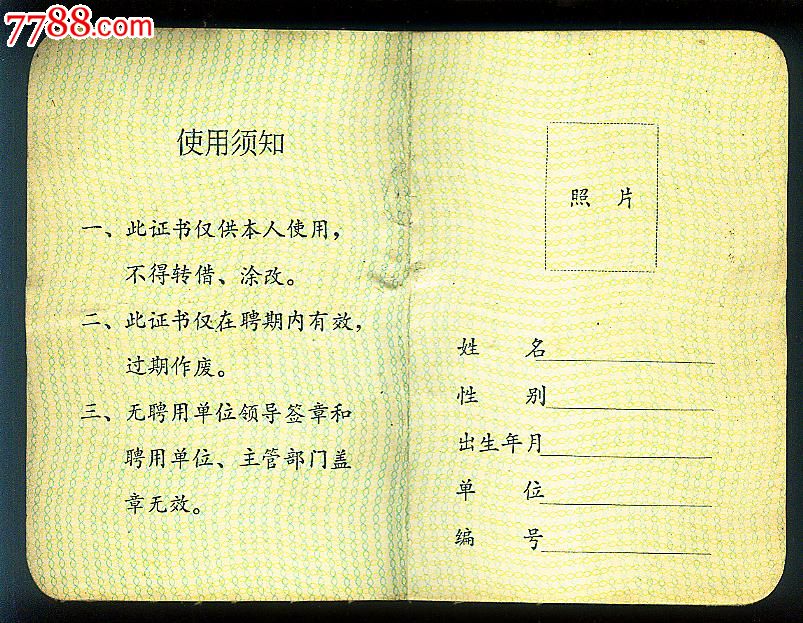 7788.com
使用须知
一、此证书仅供本人使用，
不得转借、涂改。
二、此证书仅在聘期内有效，
过期作废。
三、无聘用单位领导签章和
聘用单位、主管部门盖
章无效。
照 片
姓 名
性 别
出生年月
单 位
编 号